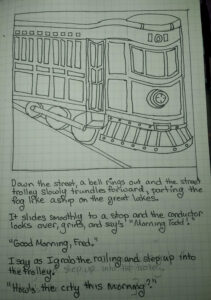 Down the street, a bell rings out and the street
trolley slowly trundles forward, parting the
fog like a ship on the great lakes.
It slides smoothly to a stop and the conductor
looks over, grins, and says "Morning Todd!"
"Good Morning, Fred."
I say as I grab the railing and step up into
the trolley. step up into the
"How's the city this morning?"